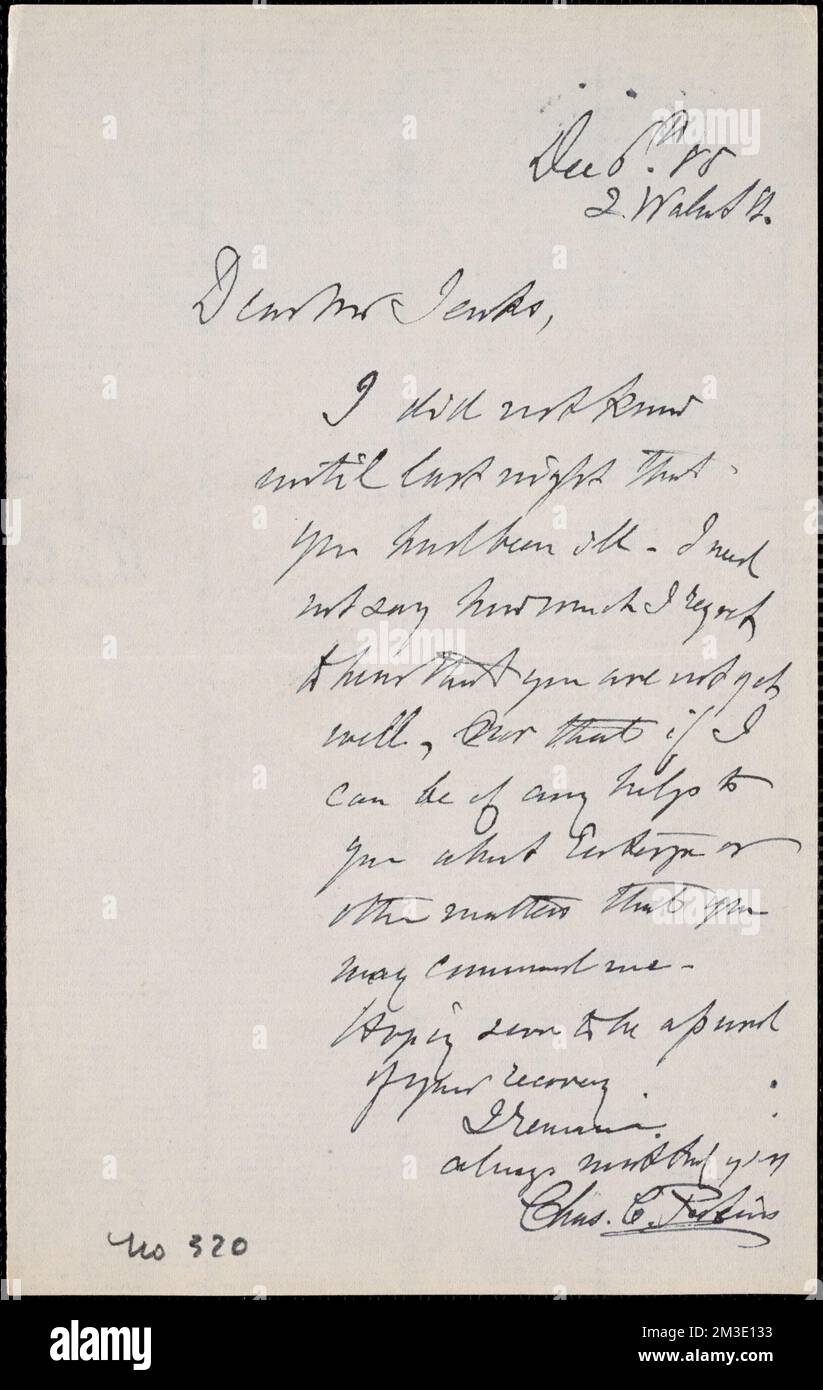 Dec 6th. 85
2 Walnut St.
Dear Mr Jenks,
I did not know
until last night that
you had been ill - I need
not say how much I regret
to hear that you are not yet
well, nor that if I
can be of any help to
you about or
other matters that you
may command me -
Hoping soon to be assured
of your recovery
I remain.
always most truly yours
Chas. C. Perkins
No 320
alamy
alamy
Image ID: 2M3E133
www.alamy.com